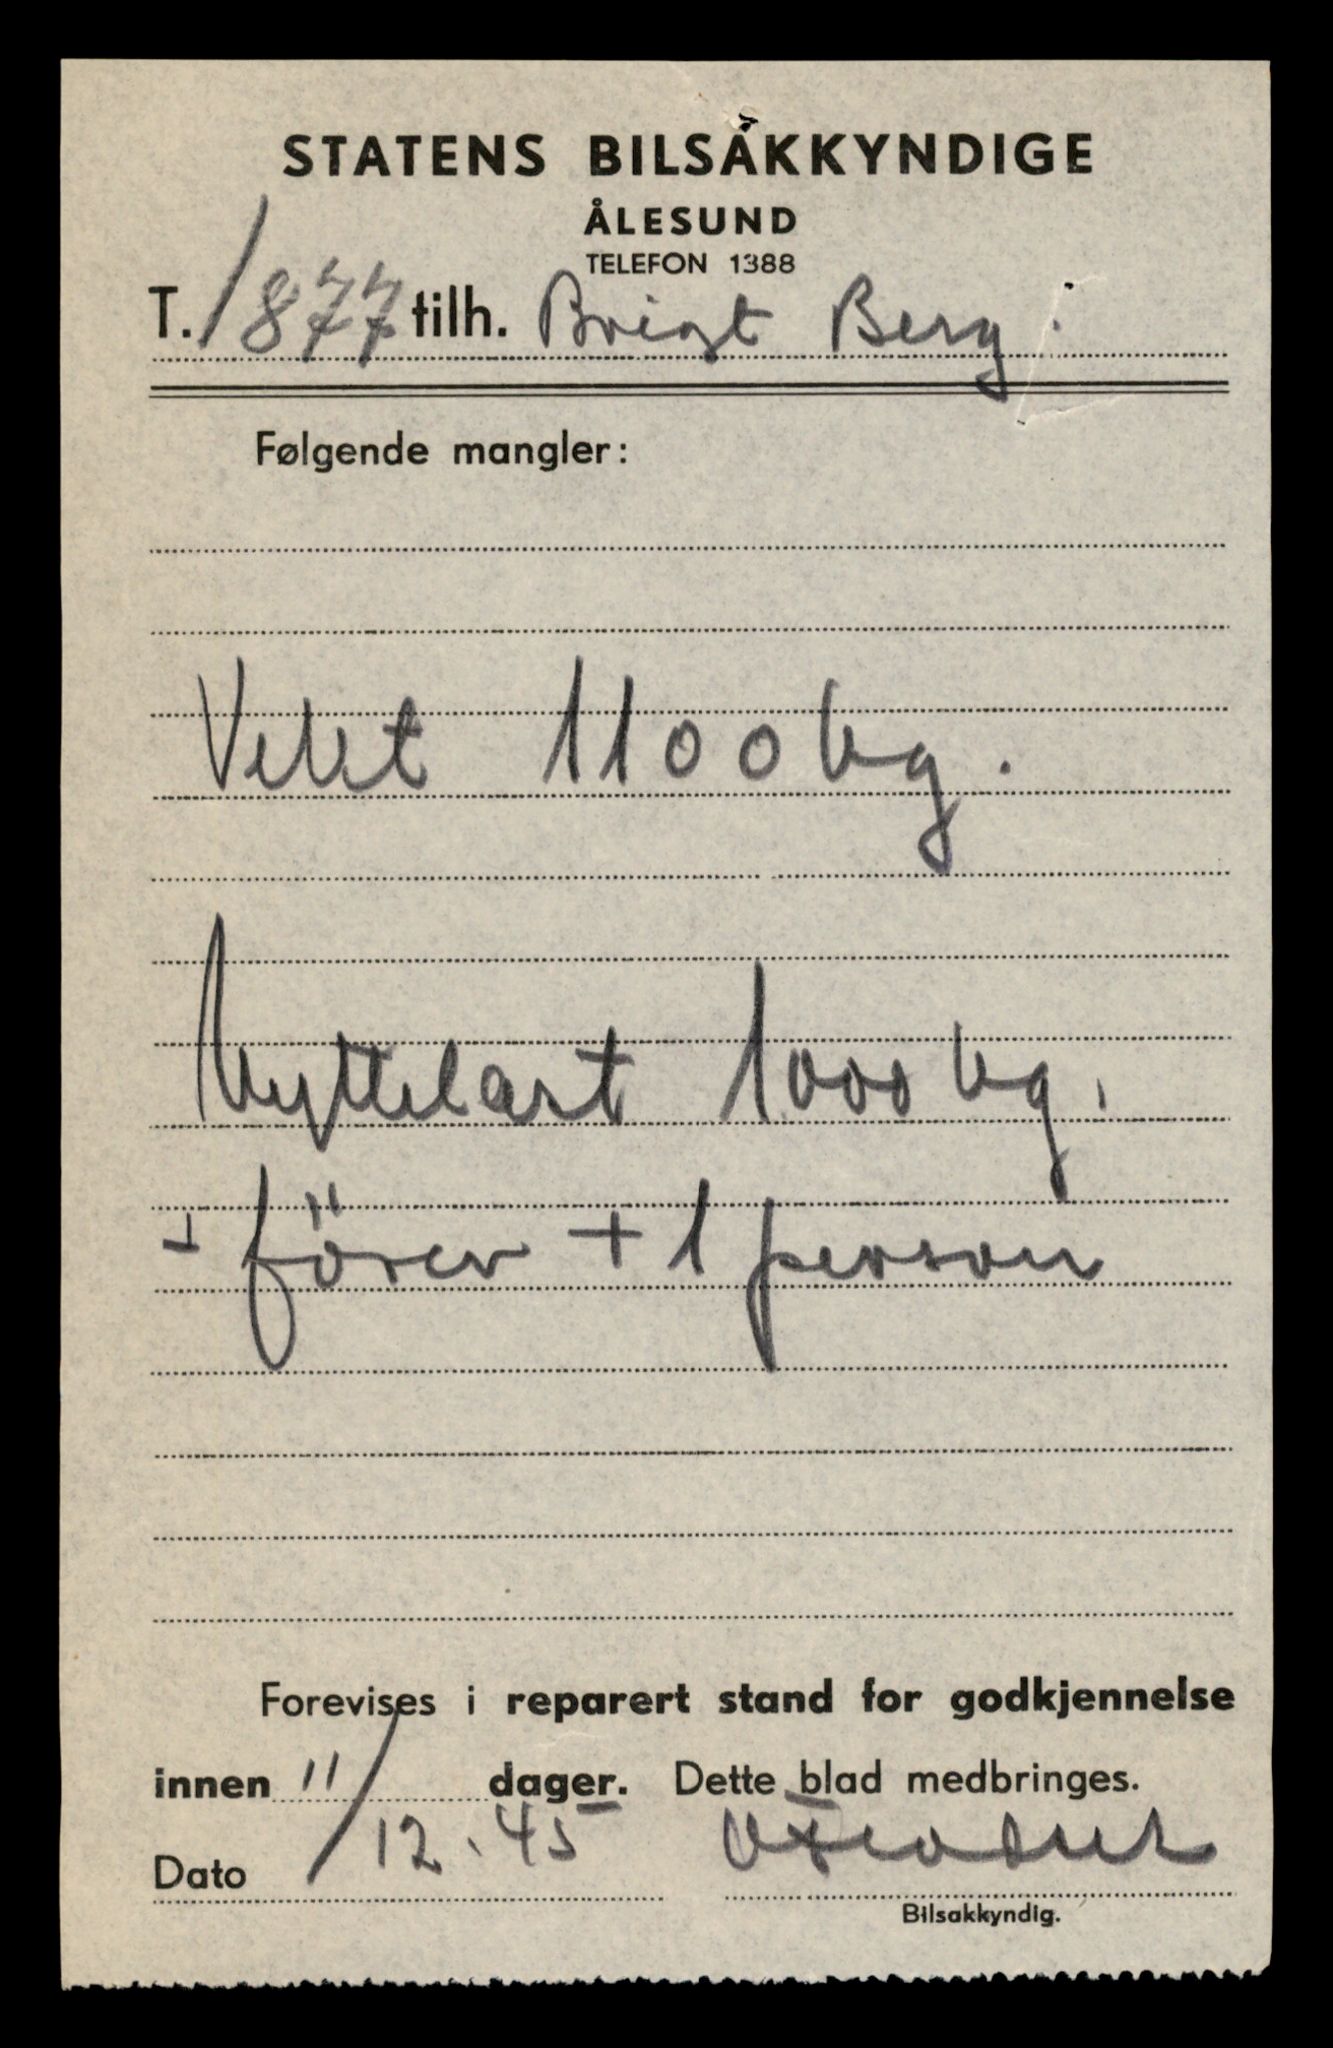 STATENS BILSAKKYNDIGE
ÅLESUND
TELEFON 1388
T. 1877 tilh. Brigt Berg.
Følgende mangler:
Vekt 1100 kg.
Nyttelast 1000 kg.
+ förer + 1 person
Forevises i reparert stand for godkjennelse
innen dager. Dette blad medbringes.
Dato 11/12.45
Bilsakkyndig.